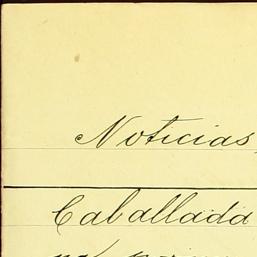 Noticias,
Caballada